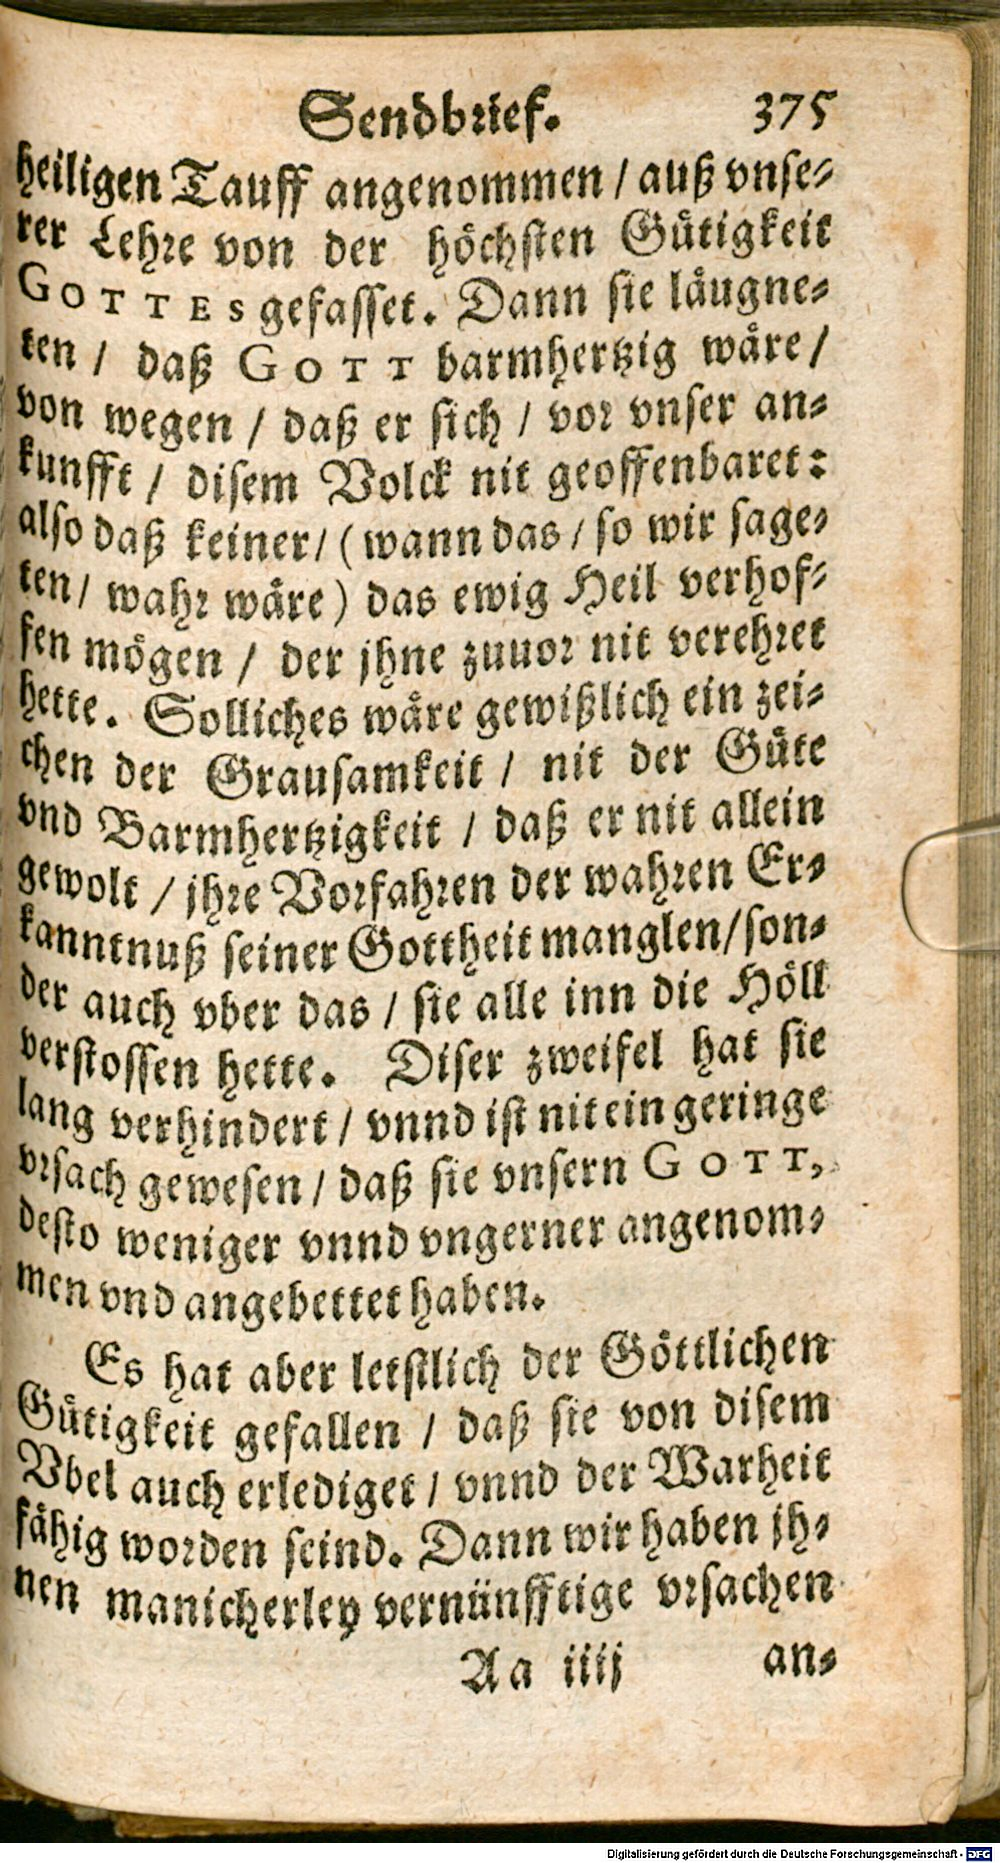 Sendbrief. 375
heiligen Tauff angenommen / auß vnse-
rer Lehre von der höchsten Gütigkeit
GOTTES gefasset. Dann sie läugne-
ten / daß GOTT barmhertzig wäre /
von wegen / daß er sich / vor vnser an-
kunfft / disem Volck nit geoffenbaret:
also daß keiner / (wann das / so wir sage-
ten / wahr wäre) das ewig Heil verhof-
fen mögen / der jhne zuuor nit verehret
hette. Solliches wäre gewißlich ein zei-
chen der Grausamkeit / nit der Güte
vnd Barmhertzigkeit / daß er nit allein
gewolt / jhre Vorfahren der wahren Er-
kanntnuß seiner Gottheit manglen / son-
der auch vber das / sie alle inn die Höll
verstossen hette. Diser zweifel hat sie
lang verhindert / vnnd ist nit ein geringe
vrsach gewesen / daß sie vnsern GOTT,
desto weniger vnnd vngerner angenom-
men vnd angebettet haben.
Es hat aber letstlich der Göttlichen
Gütigkeit gefallen / daß sie von disem
Vbel auch erlediget / vnnd der Warheit
fähig worden seind. Dann wir haben jh-
nen manicherley vernünfftige vrsachen
Aa iiij an-
Digitalisierung gefördert durch die Deutsche Forschungsgemeinschaft - DFG